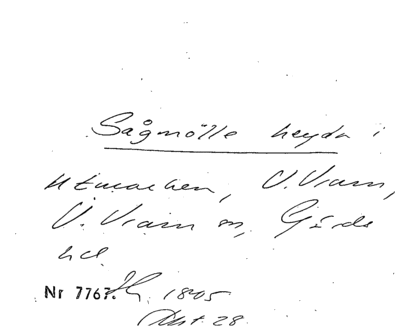 Sågmölle heyda i
Utmarken, V. Vram,
V. Vram sn, Gärds
hd.
Nr 7767. 1845
28